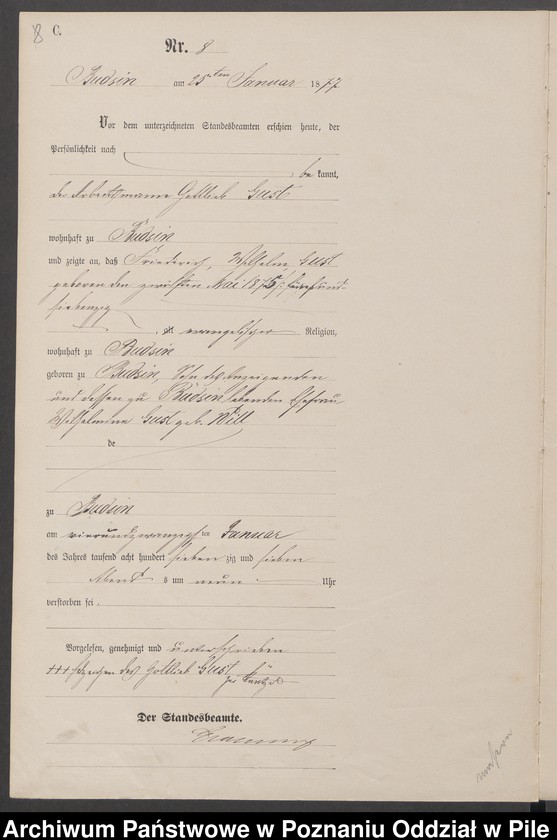 8 C.
Nr. 8
Budsin am 25ten Januar 1877
Vor dem unterzeichneten Standesbeamten erschien heute, der
Persönlichkeit nach
be kannt,
der Arbeitsmann Gottlieb Gust
wohnhaft zu Budsin
und zeigte an, daß Friederich, Wilhelm Gust
geboren den zwölften Mai 1875, fünfund-
siebenzig
evangelischer Religion,
wohnhaft zu Budsin
geboren zu Budsin, Sohn des Anzeigenden
und dessen zu Budsin lebenden Ehefrau
Wilhelmine Gust geb. Will
de
zu Budsin
am vierundzwanzigsten Januar
des Jahres tausend acht hundert sieben zig und sieben
Abend s um neun Uhr
verstorben sei.
Vorgelesen, genehmigt und unterschrieben
+++ Zeichen des Gottlieb Gust
Der Standesbeamte.
Archiwum Państwowe w Poznaniu Oddział w Pile